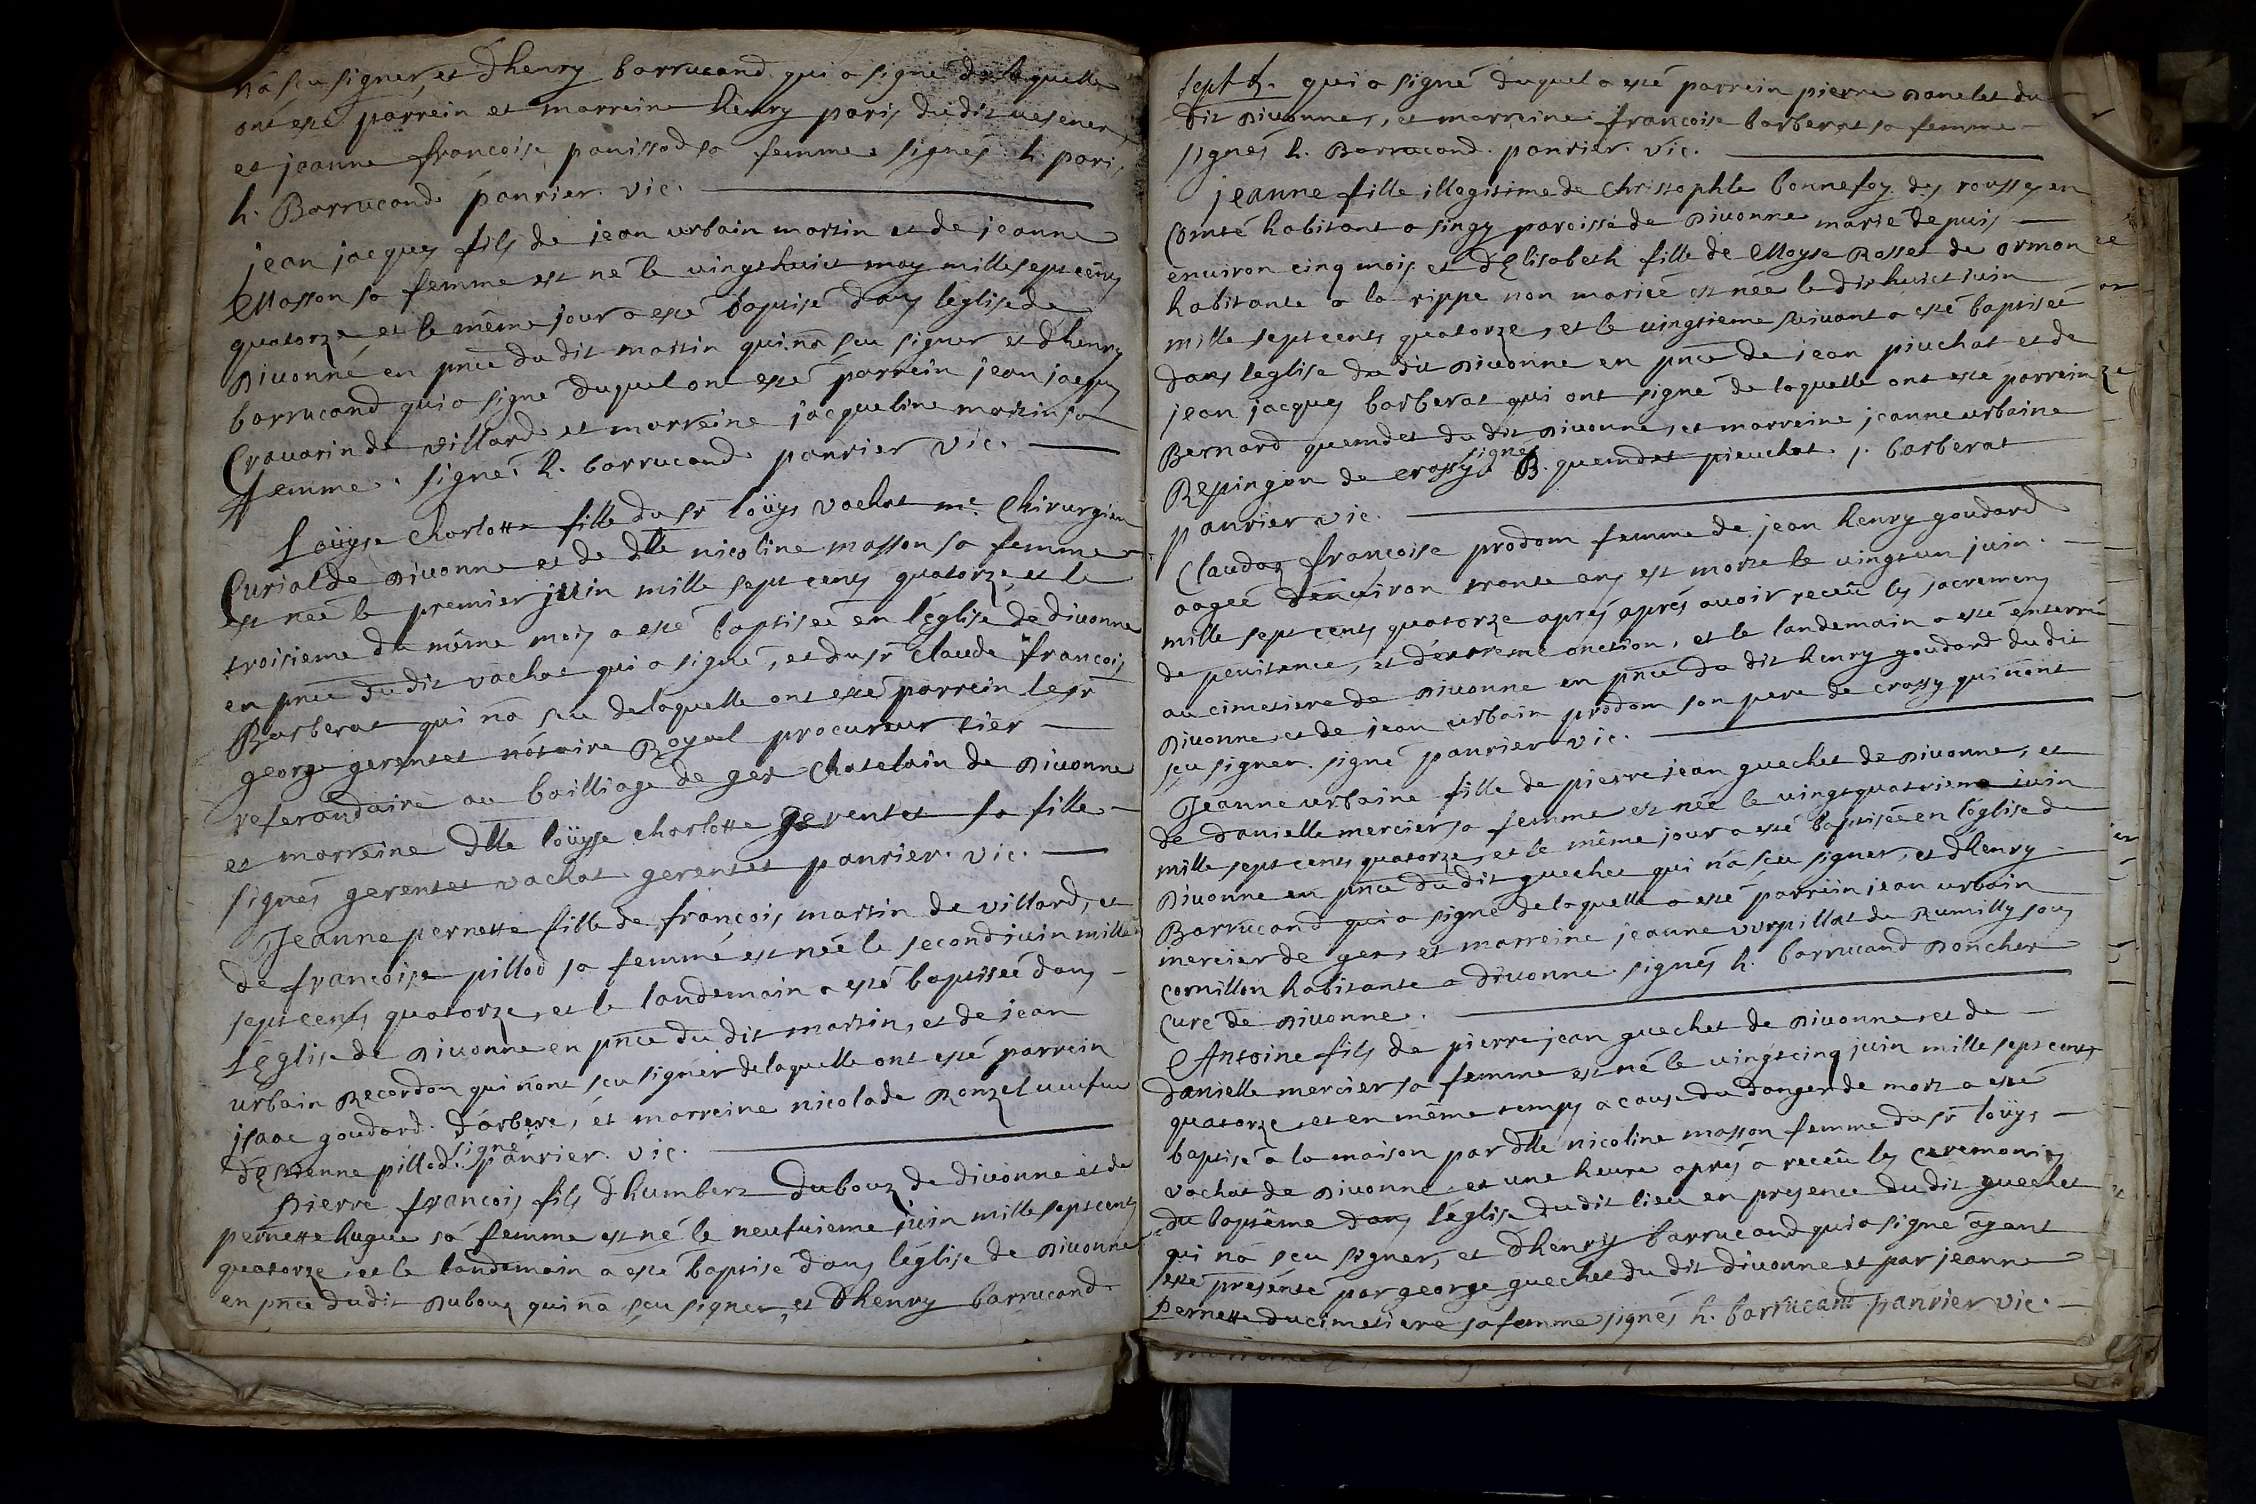 n'a sceu signer, et d'henry barrucand qui a signé de laquelle
ont esté parrein et marreine henry paris du dit vesenex
et jeanne francoise panissod sa femme signés h. paris,
h. Barrucand panrier. vic.
jean jacques fils de jean urbain martin et de jeanne
Masson sa femme est né le vingthuict may mille sept cents
quatorze et le même jour a esté baptisé dans léglise de
Divonne en pnce du dit martin qui n'a sceu signer et d'henry
barrucand qui a signé duquel ont esté parrein jean jacques
Cravarin de Villard et marreine jacqueline martin sa
femme. signé h. barrucand panrier vic.
Loüyse charlotte fille du sr loüys vachat me. Chirurgien
Curial de Divonne et de dlle nicoline masson sa femme
est née le premier juin mille sept cents quatorze et le
troisieme du même mois a esté baptisée en l'église de divonne
en pnce du dit vachat qui a signé, et du sr Claude francois
Barberat qui n'a sceu de laquelle ont esté parrein le sr
george gerentet nótaire Royal procureur tier
referandaire au bailliage de gex Chatelain de Divonne
et marreine dlle loüyse charlotte gerentet sa fille
signés gerentet vachat gerentet panrier. vic.
Jeanne pernette fille de francois martin de villard, et
de francoise pillod sa femme est née le second juin mille
sept cents quatorze, et le landemain a esté baptisée dans
l'Eglise de Divonne en pnce du dit martin, et de jean
urbain Recordon qui n'ont sceu signer de laquelle ont esté parrein
isaac goudard d'arbere, et marreine nicolade Ronzel veufve
d'Estienne pillod. signé panrier. vic.
Pierre francois fils d'humbert Dubouz de divonne et de
pernette hugue sa femme est né le neufvieme juin mille sept cents
quatorze, et le landemain a esté baptisé dans l'église de Divonne
en pnce du dit Dubouz qui n'a sceu signer, et d'henry barrucand
qui a signé duquel a esté parrein pierre Danelet du
dit Divonne, et marreine francoise barberat sa femme
signés h. Barrucand. panrier. vic.
jeanne fille illegitime de christophle bonnefoy des rousses en
Comté habitant a singy paroisse de Divonne marié depuis
environ cinq mois et d'Elisabeth fille de Moyse Rosset de ormon
habitante a la rippe non mariée est née le dixhuict juin
mille sept cents quatorze, et le vingtieme suivant a esté baptisée
dans leglise du dit Divonne en pnce de jean piuchat et de
jean jacques barberat qui ont signé de laquelle ont esté parrein
Bernard quemdet du dit Divonne, et marreine jeanne urbaine
Repingon de crassy signés B. quemdet pieuchat. j. barberat
panrier vic.
Claudaz francoise prodom femme de jean henry goudard
aagée d'environ trante ans est morte le vingtun juin
mille sept cents quatorze aprés aprés avoir receü les sacremens
de penitence, et d'extreme onction, et le landemain a esté enterrée
au cimetiere de Divonne en pnce du dit henry goudard du dit
Divonne, et de jean urbain prodom son pere de crassy qui n'ont
sceu signer. signé panrier vic.
Jeanne urbaine fille de pierre jean guechet de Divonne, et
de danielle mercier sa femme est née le vingtquatrieme juin
mille sept cents quatorze, et le même jour a esté baptisée en l'église de
Divonne en pnce du dit guechet qui n'a sceu signer, et d'henry
Barrucand qui a signé de laquelle a esté parrein jean urbain
mercier de gex, et marreine jeanne vurpillat de Rumilly sous
cornillon habitante a divonne signés h. barrucand Doncher
Curé de Divonne.
Antoine fils de pierre jean guechet de Divonne et de
danielle mercier sa femme est né le vingtcinq juin mille sept cents
quatorze et en même temps a cause du danger de mort a esté
baptisé a la maison par dlle nicoline masson femme du sr loüys
vachat de Divonne et une heure aprés a receü les ceremonies
du baptême dans l'église du dit lieu en presence du dit guechet
qui n'a sceu signer, et d'henry barrucand qui a signé ayant
esté présenté par george guechet du dit divonne et par jeanne
Pernette ducimetiere sa femme signés h. barrucand panrier vic.